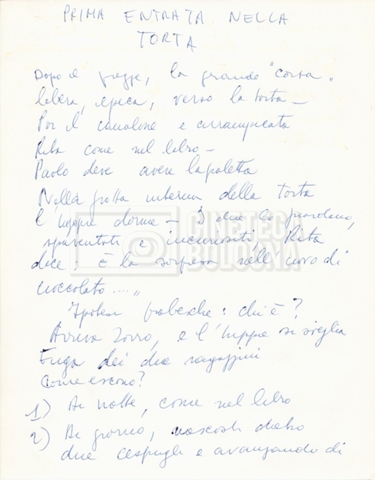 PRIMA ENTRATA NELLA
TORTA
Dopo le gregge, la grande "corsa"
libera, epica, verso la torta –
Poi il canalone e arrampicata
Rita come nel libro –
Paolo deve avere la paletta
Nella grotta interna della torta
l'Huppe dorme – I due lo guardano,
spaventati e incuriositi, Rita
dice: "È la sorpresa nell'uovo di
cioccolato....."
Ipotesi fiabesche: chi è?
Arriva Zorro, e l'Huppe si sveglia
Fuga dei due ragazzini
Come escono?
1) Di notte, come nel libro
2) Di giorno, nascosti dietro
due cespugli e avanzando di
CINETECA
BOLOGNA